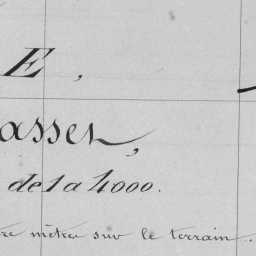 E,
asses,
de 1 a 4000.
re métre sur le terrain.